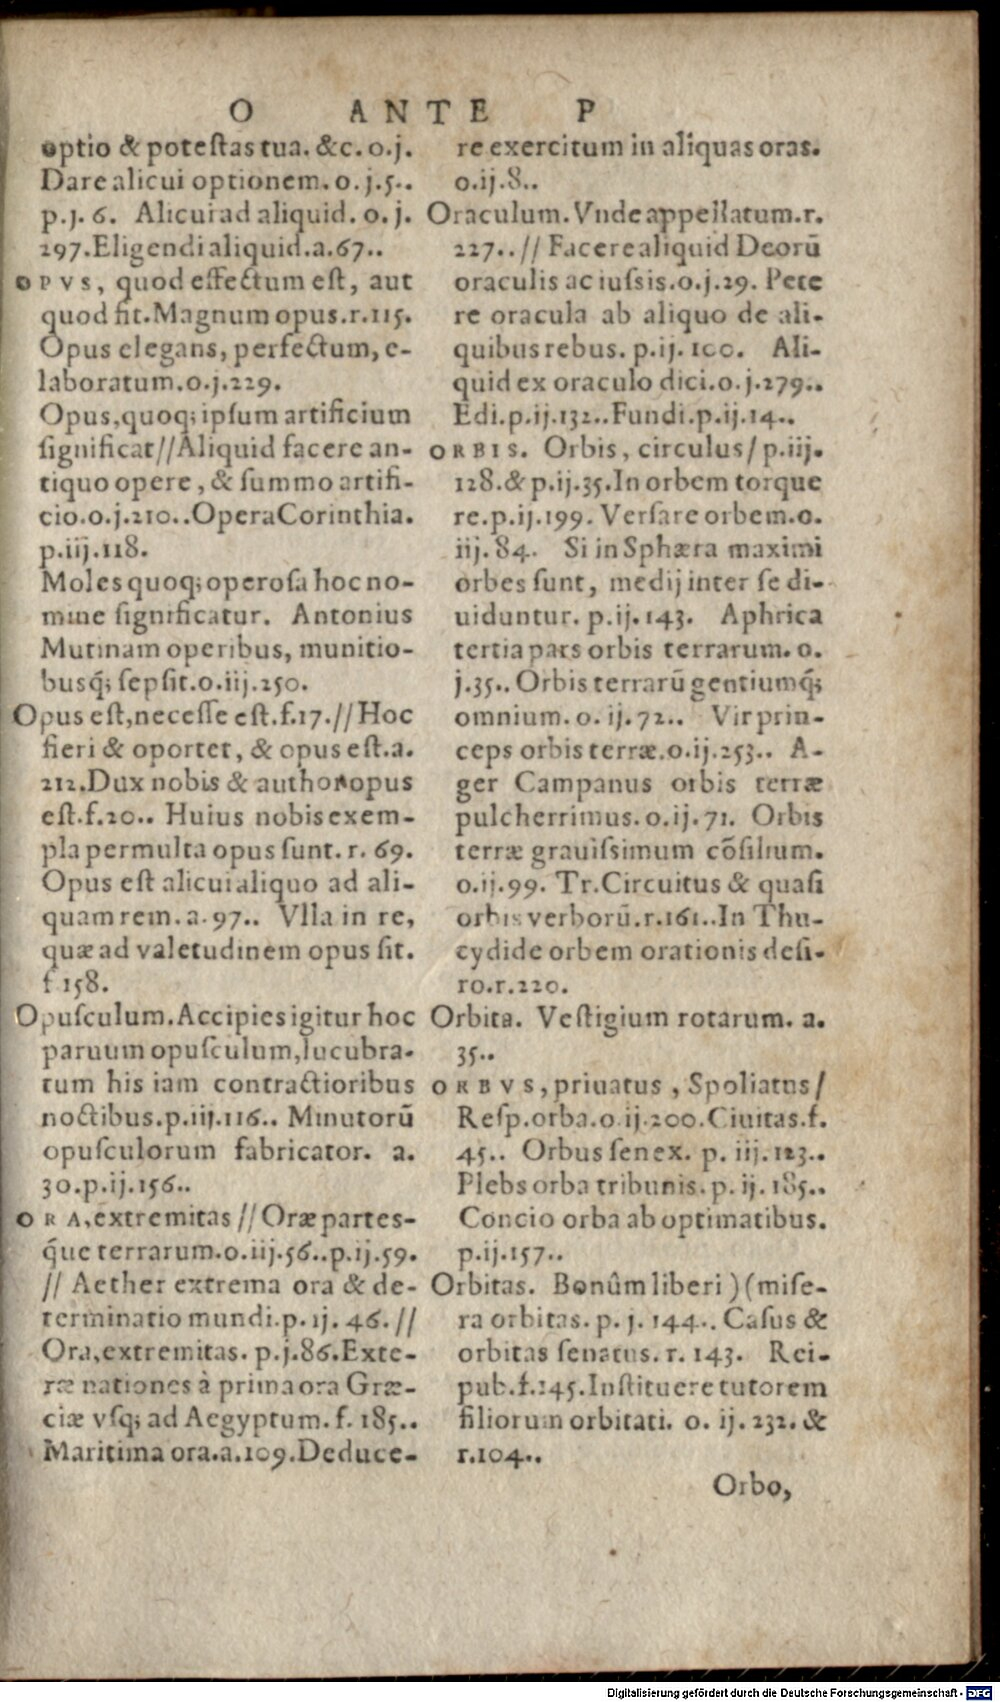 O ANTE P
optio & potestas tua. &c. o.j.
Dare alicui optionem. o. j.5..
p.j. 6. Alicui ad aliquid. o. j.
297.Eligendi aliquid.a.67..
OPVS, quod effectum est, aut
quod fit.Magnum opus.r.115.
Opus elegans, perfectum, e-
laboratum.o.j.229.
Opus,quoq; ipsum artificium
significat//Aliquid facere an-
tiquo opere, & summo artifi-
cio.o.j.210..Opera Corinthia.
p.iij.118.
Moles quoq; operosa hoc no-
mine significatur. Antonius
Mutinam operibus, munitio-
busq́; sepsit.o.iij.250.
Opus est,necesse est.f.17.//Hoc
fieri & oportet, & opus est.a.
212.Dux nobis & author opus
est.f.20.. Huius nobis exem-
pla permulta opus sunt. r. 69.
Opus est alicui aliquo ad ali-
quam rem. a. 97.. Vlla in re,
quæ ad valetudinem opus sit.
f 158.
Opusculum.Accipies igitur hoc
paruum opusculum,lucubra-
tum his iam contractioribus
noctibus.p.iij.116.. Minutorũ
opusculorum fabricator. a.
30.p.ij.156..
ORA,extremitas // Oræ partes-
q́ue terrarum.o.iij.56..p.ij.59.
// Aether extrema ora & de-
terminatio mundi.p. ij. 46. //
Ora,extremitas. p.j.86.Exte-
ræ nationes à prima ora Græ-
ciæ vsq; ad Aegyptum. f. 185..
Maritima ora.a.109.Deduce-
re exercitum in aliquas oras.
o.ij.8..
Oraculum.Vnde appellatum.r.
227..// Facere aliquid Deorũ
oraculis ac iussis.o.j.29. Pete
re oracula ab aliquo de ali-
quibus rebus. p.ij. 100. Ali-
quid ex oraculo dici.o.j.279..
Edi.p.ij.132..Fundi.p.ij.14..
ORBIS. Orbis, circulus/ p.iij.
128.& p.ij.35.In orbem torque
re.p.ij.199. Versare orbem.o.
iij.84. Si in Sphæra maximi
orbes sunt, medij inter se di-
uiduntur. p.ij.143. Aphrica
tertia pars orbis terrarum. o.
j.35.. Orbis terrarũ gentiumq́;
omnium. o. ij. 72.. Vir prin-
ceps orbis terræ.o.ij.253.. A-
ger Campanus orbis terræ
pulcherrimus. o.ij. 71. Orbis
terræ grauissimum cõsilium.
o.ij.99. Tr.Circuitus & quasi
orbis verborũ.r.161..In Thu-
cydide orbem orationis desi-
ro.r.220.
Orbita. Vestigium rotarum. a.
35..
ORBVS, priuatus, Spoliatus/
Resp.orba.o ij.200.Ciuitas.f.
45.. Orbus senex. p. iij.123..
Plebs orba tribunis. p. ij. 185..
Concio orba ab optimatibus.
p.ij.157..
Orbitas. Bonûm liberi )( mise-
ra orbitas. p. j. 144.. Casus &
orbitas senatus. r. 143. Rei-
pub.f.145.Instituere tutorem
filiorum orbitati. o. ij. 232. &
r.104..
Orbo,
Digitalisierung gefördert durch die Deutsche Forschungsgemeinschaft - DFG